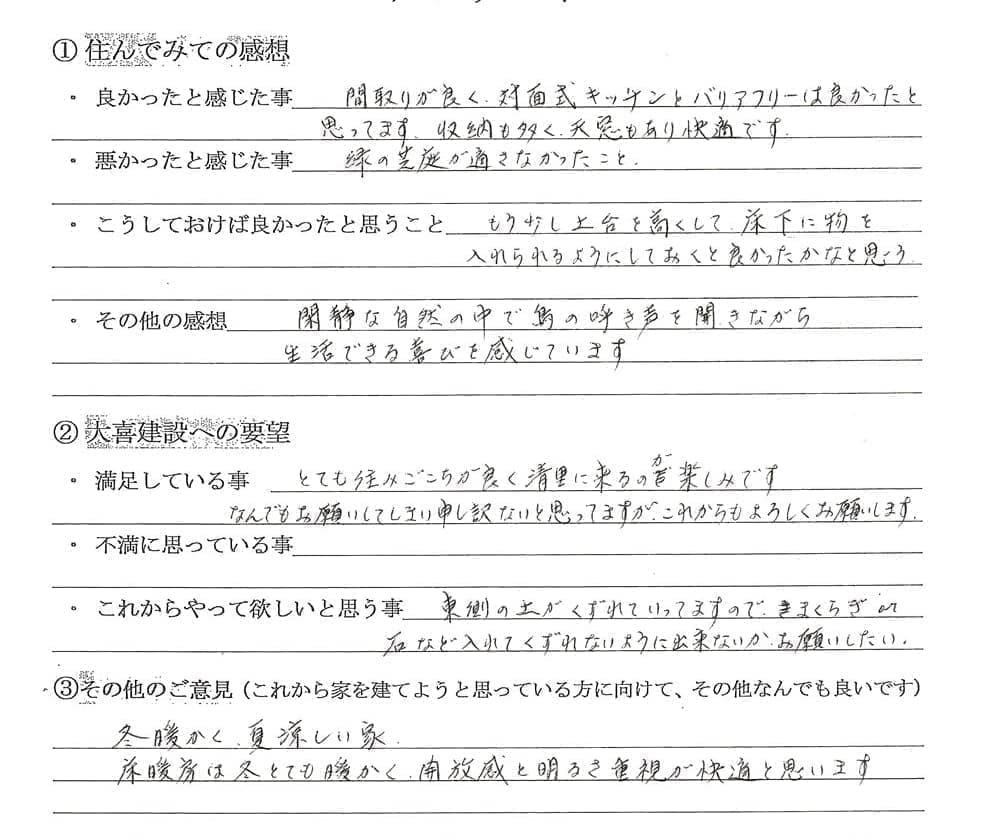 ① 住んでみての感想
・ 良かったと感じた事 間取りが良く、対面式キッチンとバリアフリーは良かったと
思ってます、収納も多く、天窓もあり快適です。
・ 悪かったと感じた事 緑の芝庭が適さなかったこと。
・ こうしておけば良かったと思うこと もう少し土台を高くして、床下に物を
入れられるようにしておくと良かったかなと思う
・ その他の感想 閑静な自然の中で鳥の呼き声を聞きながら
生活できる喜びを感じています
② 大喜建設への要望
・ 満足している事 とても住みごこちが良く清里に来るのが楽しみです
なんでもお願いしてしまい申し訳ないと思ってますが、これからもよろしくお願いします。
・ 不満に思っている事
・ これからやって欲しいと思う事 東側の土がくずれていってますので、まくらぎ or
石など入れてくずれないように出来ないか、お願いしたい。
③その他のご意見（これから家を建てようと思っている方に向けて、その他なんでも良いです）
冬暖かく、夏涼しい家、
床暖房は冬とても暖かく、開放感と明るさ重視が快適と思います